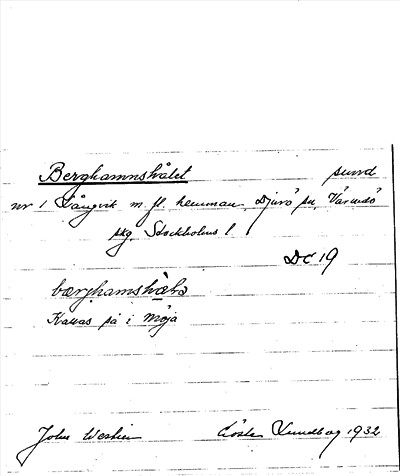 Berghamnshålet sund
nr 1 Långvik m. fl. hemman, Djurö sn, Värmdö
skg, Stockholms l
DC 19
bærghamshòlə
Kallas på i Möja
John Westin Gösta Lundberg 1932